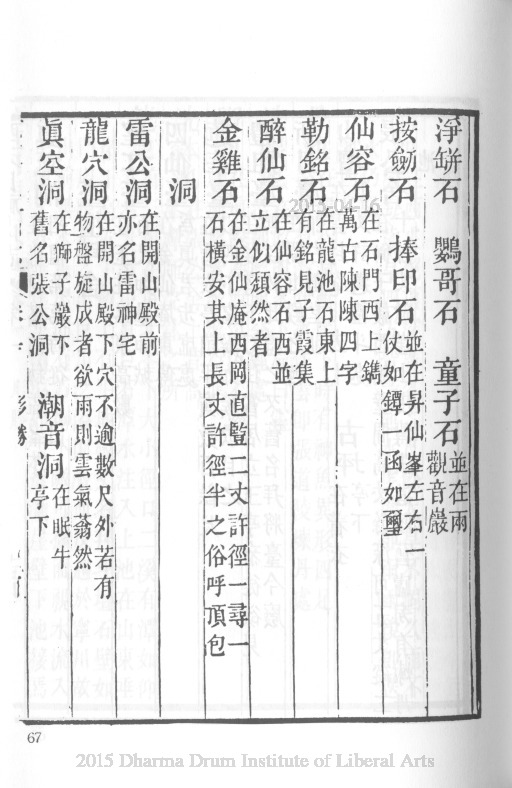 淨缾石 鸚哥石 童子石並在兩觀音巖
按劒石 捧印石並在昇仙峯左右一仗如鐔一函如璽
仙容石在石門西上鐫萬古陳陳四字
勒銘石在龍池石東上有銘見子霞集
醉仙石在仙容石西並立似頹然者
金雞石在金仙庵西岡直豎二丈許徑一尋一石橫安其上長丈許徑半之俗呼頂包
洞
雷公洞在開山殿前亦名雷神宅
龍穴洞在開山殿下穴不逾數尺外若有物盤旋成者欲雨則雲氣蓊然
眞空洞在獅子巖下舊名張公洞 潮音洞在眠牛亭下
2013-04-16
67
2015 Dharma Drum Institute of Liberal Arts